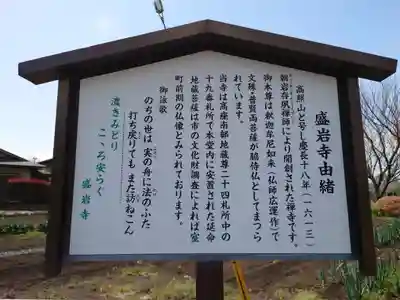 盛岩寺由緒
高照山と号し慶長十八年(一六一三)
朝岩存夙禅師により開創された禅寺です。
御本尊は釈迦牟尼如来(仏師広運作)で
文殊・普賢両菩薩が脇侍仏としてまつら
れています。
当寺は高座南部地蔵尊二十四札所中の
十九番札所で本堂内に安置された延命
地蔵菩薩は市の文化財調査によれば室
町前期の仏像とみられております。
御詠歌
のちの世は 実の舟に法のふた
打ち戻りても また訪ねこん
濃きみどり
こゝろ安らぐ
盛岩寺